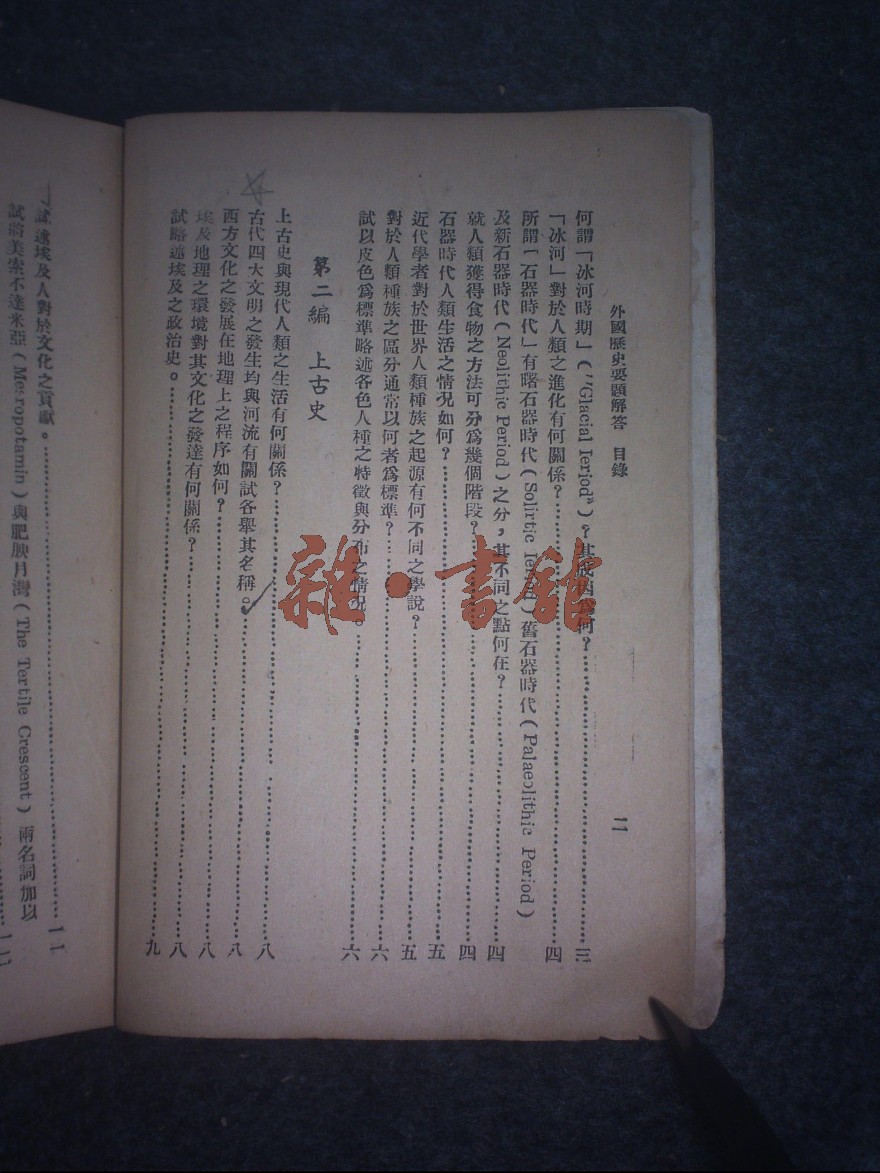 外國歷史要題解答　目錄　二
何謂「冰河時期」（"Glacial Ieriod"）？其成因爲何？……三
「冰河」對於人類之進化有何關係？……四
所謂「石器時代」有曙石器時代（Solirtic Ieriod）舊石器時代（Palaeolithic Period）
及新石器時代（Neolithic Period）之分，其不同之點何在？……四
就人類獲得食物之方法可分爲幾個階段？……四
石器時代人類生活之情況如何？……五
近代學者對於世界人類種族之起源有何不同之學說？……五
對於人類種族之區分通常以何者爲標準？……六
試以皮色爲標準略述各色人種之特徵與分布之情況。……六
第二編　上古史
上古史與現代人類之生活有何關係？……八
古代四大文明之發生均與河流有關試各舉其名稱。……八
西方文化之發展在地理上之程序如何？……八
埃及地理之環境對其文化之發達有何關係？……八
試略述埃及之政治史。……九
試述埃及人對於文化之貢獻。……一一
試將美索不達米亞（Mesropotamin）與肥腴月灣（The Tertile Crescent）兩名詞加以
雜·書館